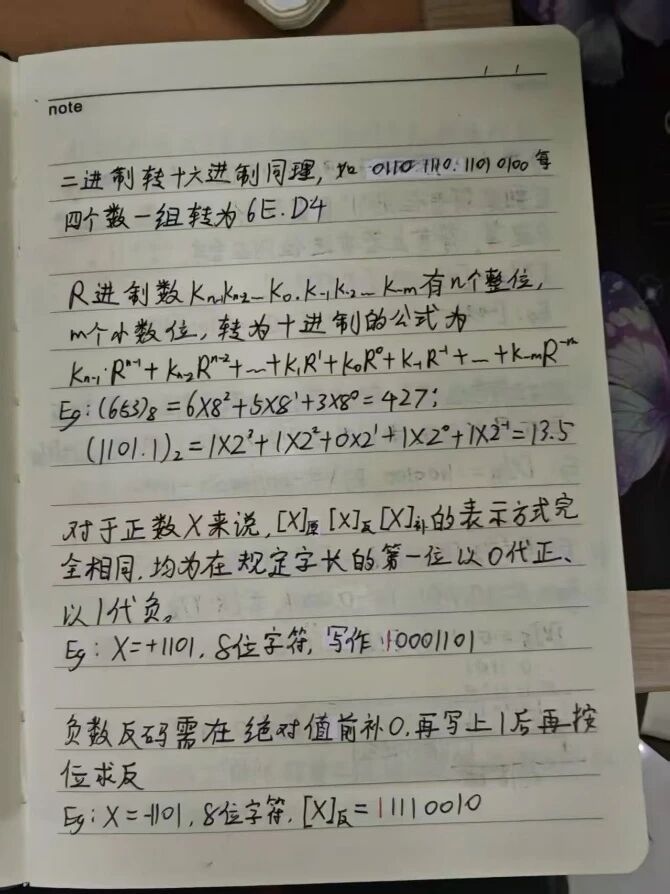 note
二进制转十六进制同理，如 0110 1110.1101 0100 每
四个数一组转为6E.D4
R进制数Kn-1Kn-2…K0.K-1K-2…K-m有n个整位，
m个小数位，转为十进制的公式为
Kn-1·Rⁿ⁻¹+Kn-2Rⁿ⁻²+…+K1R¹+K0R⁰+K-1R⁻¹+…+K-mR⁻ᵐ
Eg：(653)₈=6X8²+5X8¹+3X8⁰=427；
(1101.1)₂=1X2³+1X2²+0X2¹+1X2⁰+1X2⁻¹=13.5
对于正数X来说，[X]原 [X]反 [X]补的表示方式完
全相同，均为在规定字长的第一位以0代正、
以1代负。
Eg：X=+1101，8位字符，写作 10001101
负数反码需在绝对值前补0，再写上1后再按
位求反
Eg：X=-1101，8位字符，[X]反=11110010